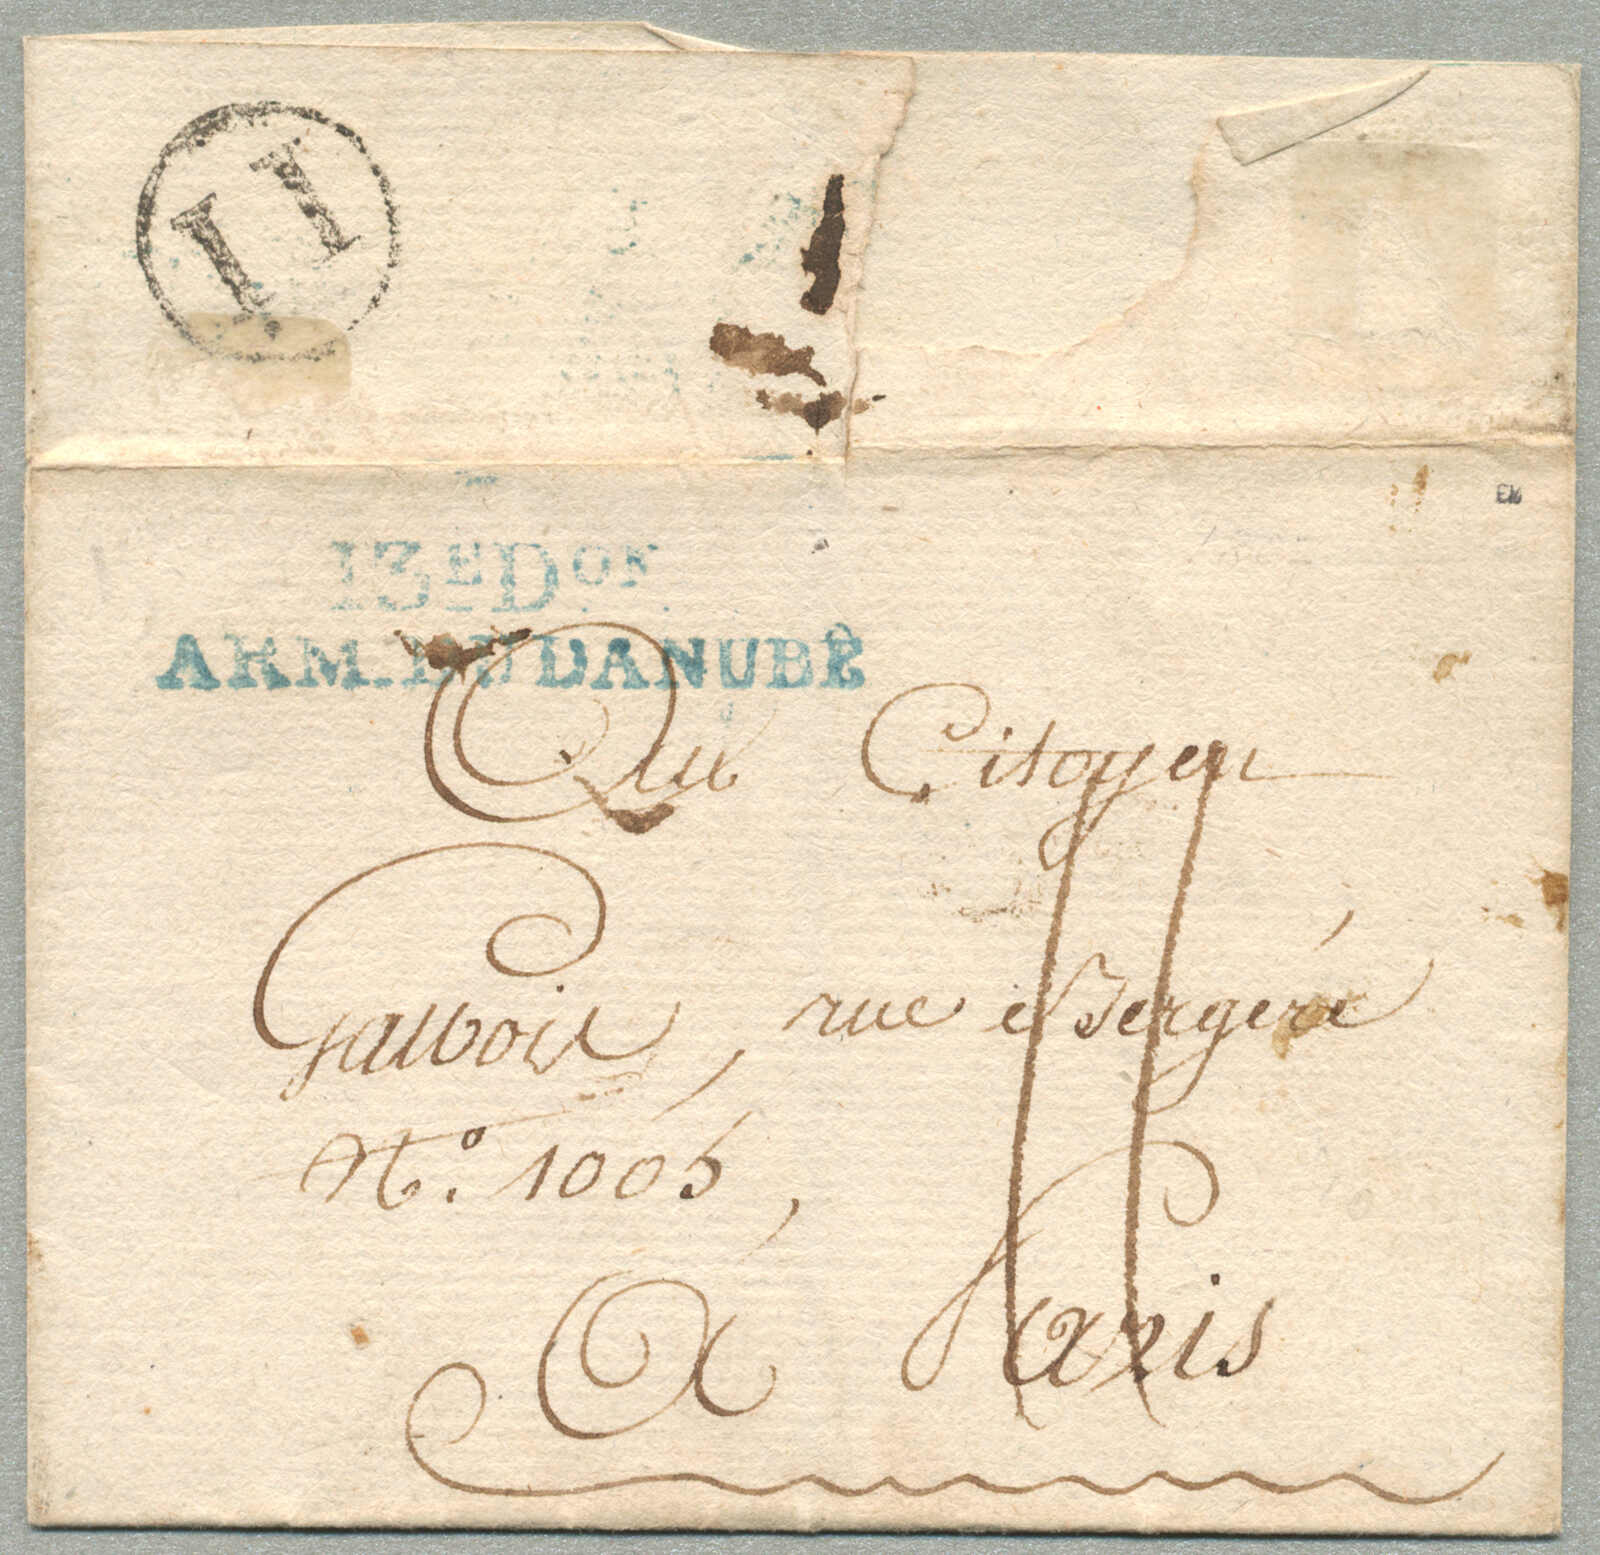 II
13E Don
ARM. DU DANUBE
Au Citoyen
Galbois, rue Bergere
No. 1005,
A Paris
11
EK